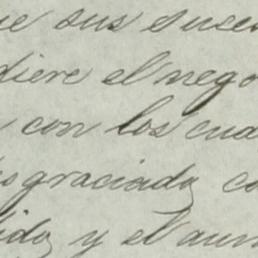 ue sus suces
diere el nego
con los cua
graciado co
ido y el aum